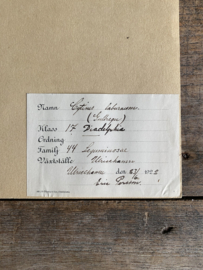 Namn Cytisus laburnum
(Gullregn)
Klass 17 Diadelphia
Ordning
Familj 44 Leguminosae
Växtställe Ulricehamn
Ulricehamn den
Eric